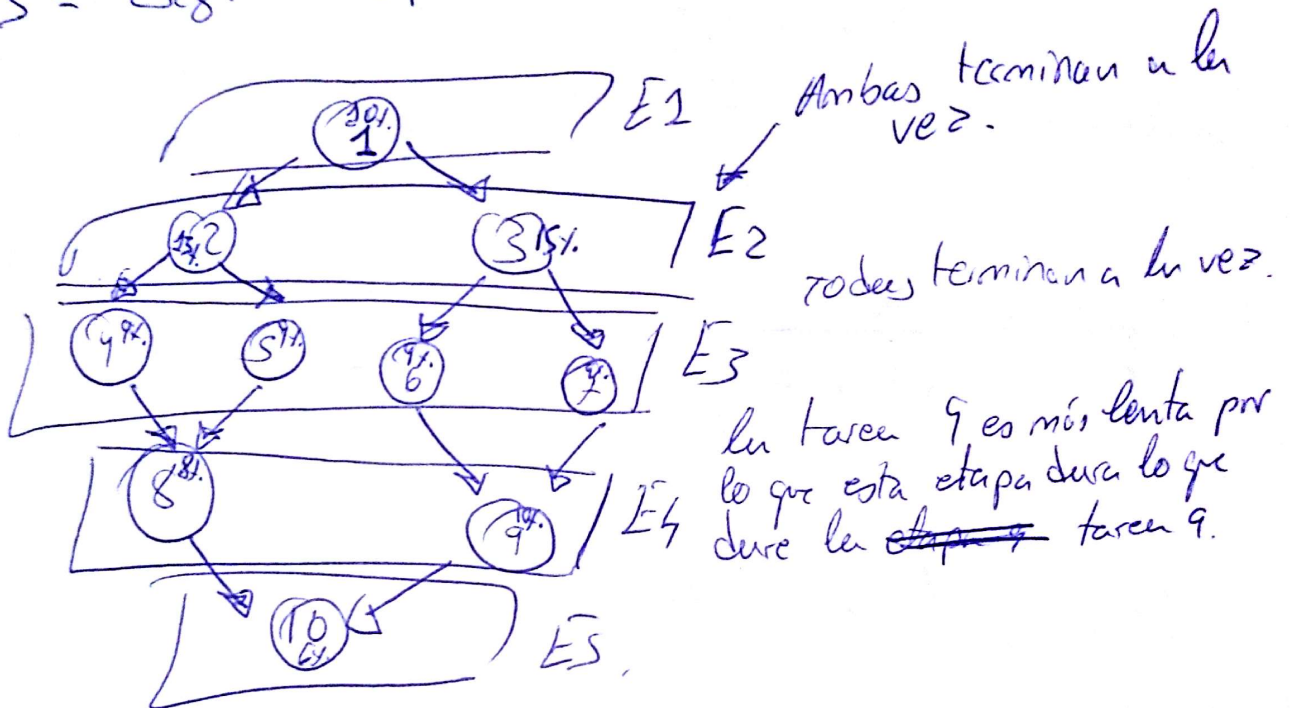 10%.
1
E1
Ambas terminan a la
vez.
15%. 2
3 15%.
E2
Todas terminan a la vez.
4 9%.
5 9%.
9%.
6
7
E3
la tarea 9 es más lenta por
lo que esta etapa dura lo que
dure la tarea 9.
8 8%.
10%.
9
E4
10
E5.